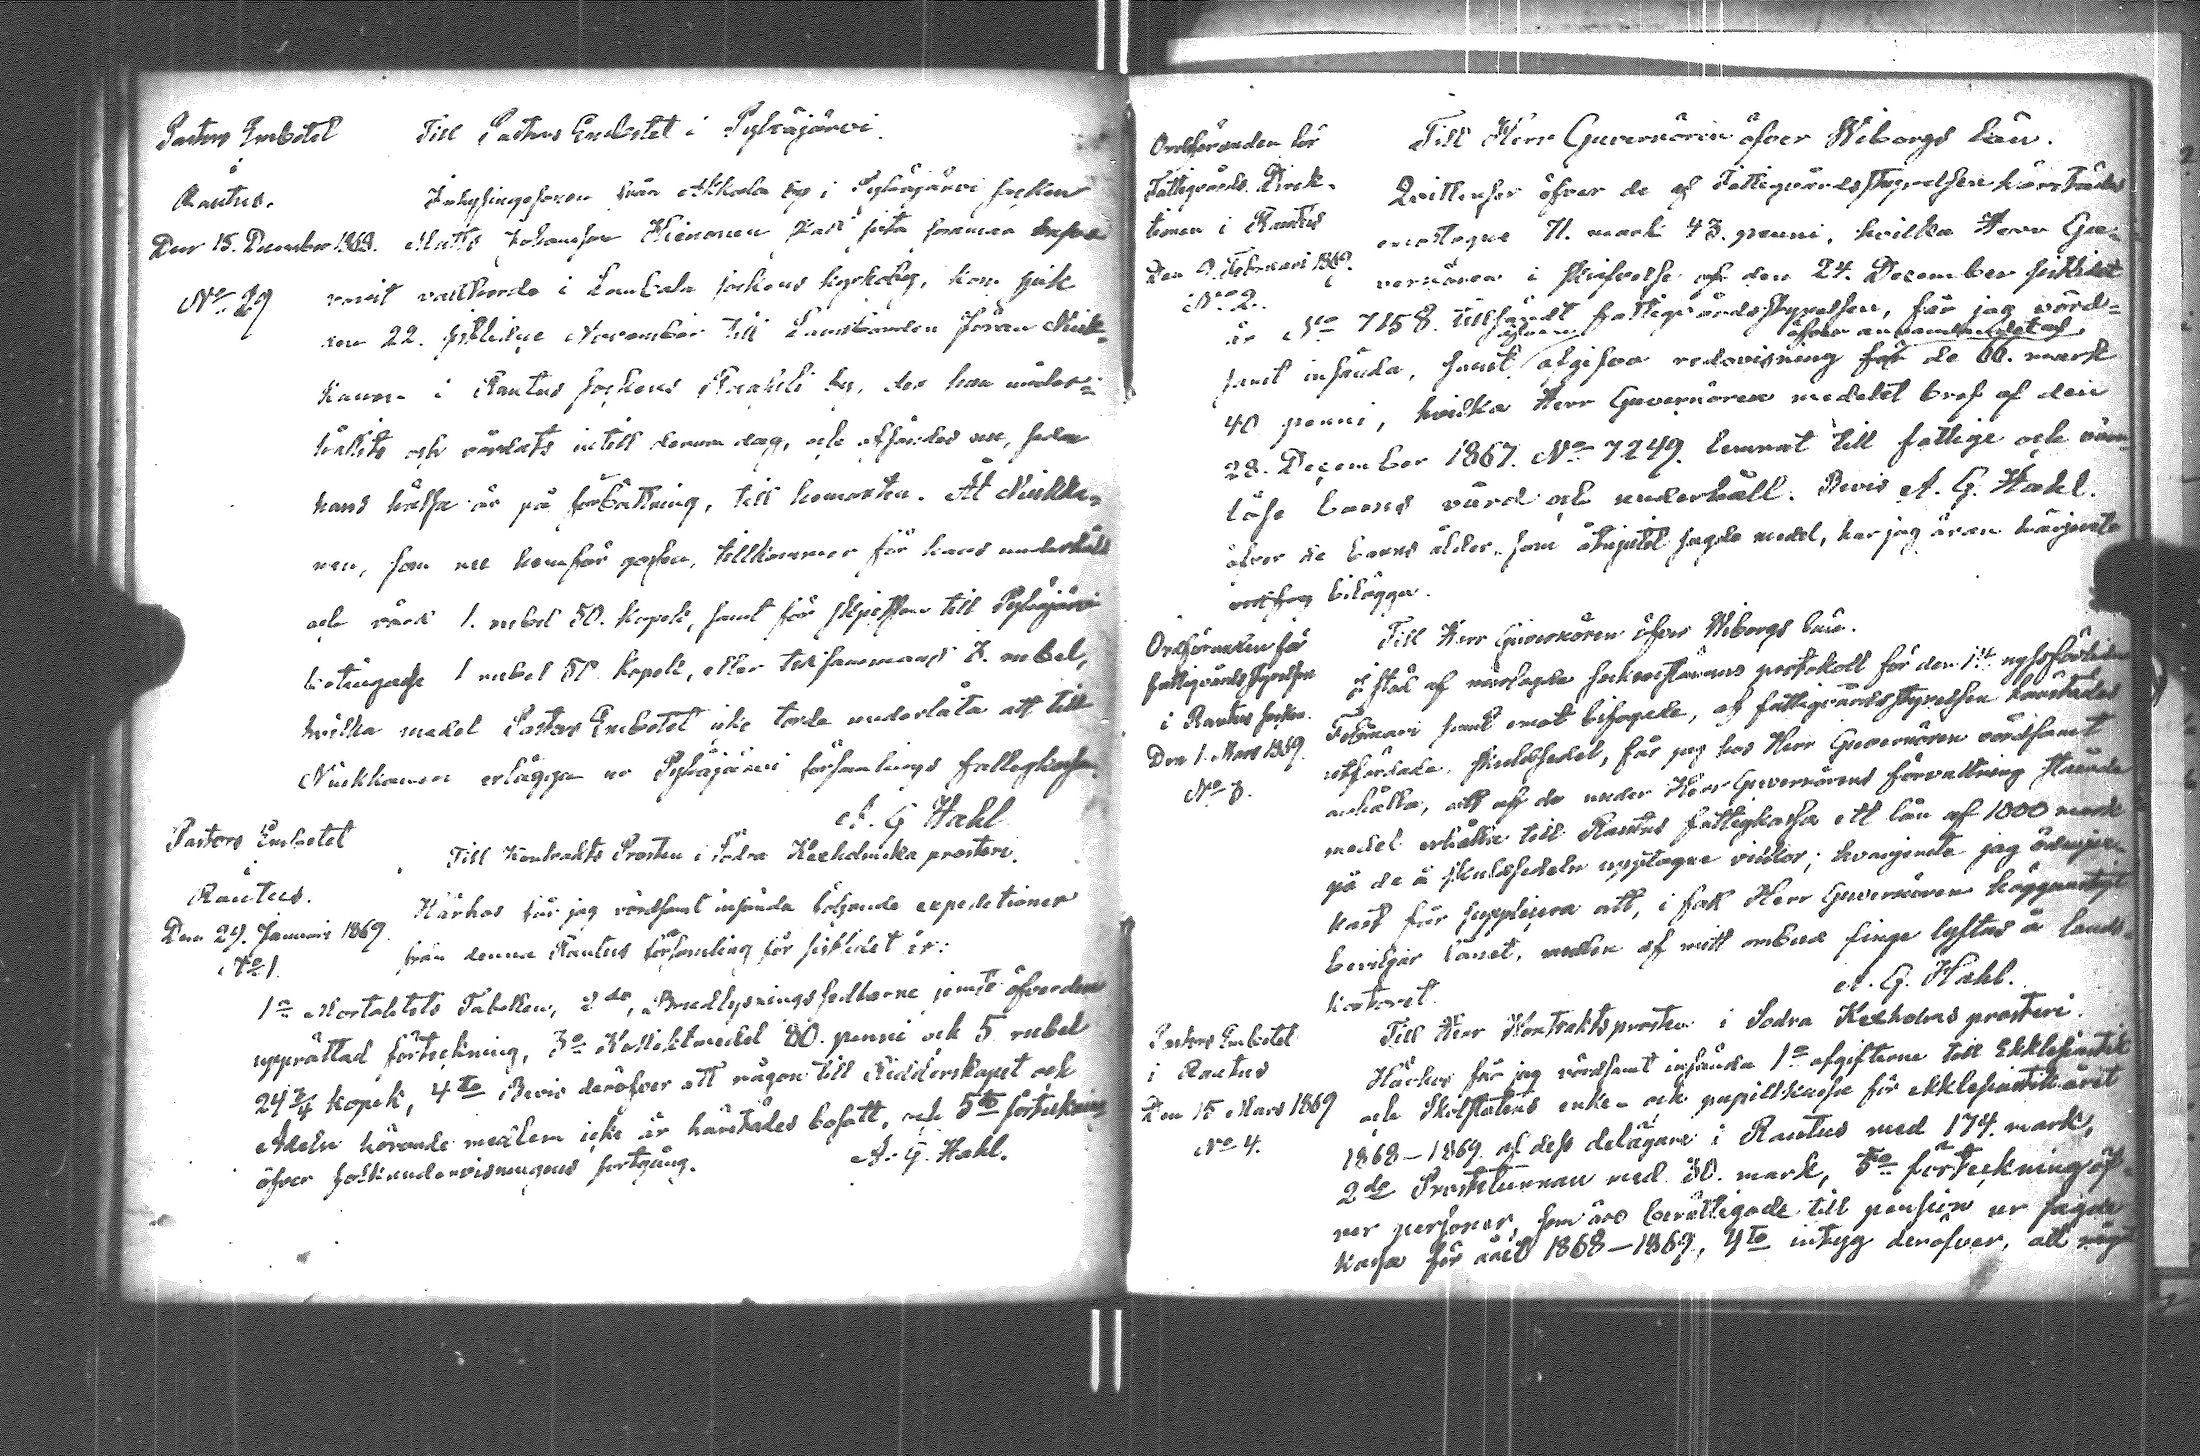 Pastors Embetet
i
Rautus.
Den 15. December 1868.
No 29
Till Pastors Embetet i Pyhäjärvi.
Inhysingesonen från Akkola by i Pyhäjärvi socken
Matts Johansson Kiénanen
varit vårdande i Rautala sockens kyrkoby, kom sjuk
den 22. sistlidne November till Landbonden Jöran Nuik-
kanen i Rautus sockens by, der han under-
hållits och vårdats intill denna dag, och affärdas nu, sedan
hans hälsa är på förbättring, till hemorten. Åt Nuikka-
nen, som nu hemför gossen, tillkommer för hans underhåll
och vård 1. rubel 50. kopek, samt för skjutsen till Pyhäjärvi
betingade 1 rubel 50 kopek, eller tillsammans 3. rubel,
hvilka medel Pastors Embetet icke torde underlåta att till
Nuikkanen erlägga ur Pyhäjärvi församlings fattigkassa.
A. G Hahl
Pastors Embetet
i
Rautus.
Den 29. Januari 1869.
No 1.
Till Kontrakts Prosten i Södra Kexholmska prosteri.
Härhos får jag vördsamt insända följande expeditioner
från denna Rautus församling för sistlidet år:
1o Mortalitets Tabellen, 2do, Brudlysningssedlarne jemte öfver dem
upprättad förteckning, 3o Kollektmedel 80. penni och 5 rubel
24 3/4 kopek, 4to Bevis deröfver att någon till Ridderskapet och
Adeln hörande medlem icke är härstädes bosatt, och 5to förteckning
öfver folkundervisningens fortgång.
A. G. Hahl.
Ordföranden för
Fattigvårds Direk-
tionen i Rautus
Den 9. Februari 1869.
No 2.
Till Herr Guvernören öfver Wiborgs län.
Qvittenser öfver de af Fattigvårdsstyrelsen härstädes
emottagne 71. mark 43. penni, hvilka Herr Gu-
vernören i skrifvelse af den 24. December sistlidet
år No 7158. tillsändt fattigvårdsstyrelsen, får jag vörd-
samt insända, samt afgifva redovisning för öfver användandet af de 66. mark
40 penni, hvilka Herr Guvernören medelst bref af den
28. December 1867. No 7249. lemnat till fattige och värn-
löse barns vård och underhåll. Bevis A. G. Hahl.
öfver de barns ålder, som åtnjutit sagde medel, har jag äran härjemte
bilägga.
Ordföranden för
fattigvårdsstyrelsen
i Rautus socken.
Den 1. Mars 1869.
No 3.
Till Herr Guvernören öfver Wiborgs län.
På stöd af närlagda sockenstämmans protokoll för den 14. nyssförlidne
Februari samt emot bifogade, af fattigvårdsstyrelsen härstädes
utfärdade skuldsedel, får jag hos Herr Guvernören vördsamt
anhålla, att af de under Herr Guvernörens förvaltning stående
medel erhålla till Rautus fattigkassa ett lån af 1000 mark
på de å skuldsedeln upptagne vilkor; hvarjemte jag ödmju-
kast får supplicera att, i fall Herr Guvernören höggunstigt
beviljar lånet, medlen af mitt ombud finge lyftas å lands-
kontoret.
A. G. Hahl.
Pastors Embetet
i Rautus
Den 15 Mars 1869
No 4.
Till Herr Kontraktsprosten i Södra Kexholms prosteri.
Härhos får jag vördsamt insända 1o afgifterne till Ekklesiastik
och Skolstatens enke- och pupillkassa för ekklesiastikåret
1868–1869 af dess delägare i Rautus med 174. mark,
2do Prosttunnan med 30. mark, 3o förteckning öf-
ver personer, som äro berättigade till pension ur sagde
kassa för året 1868–1869, 4to intyg deröfver, att